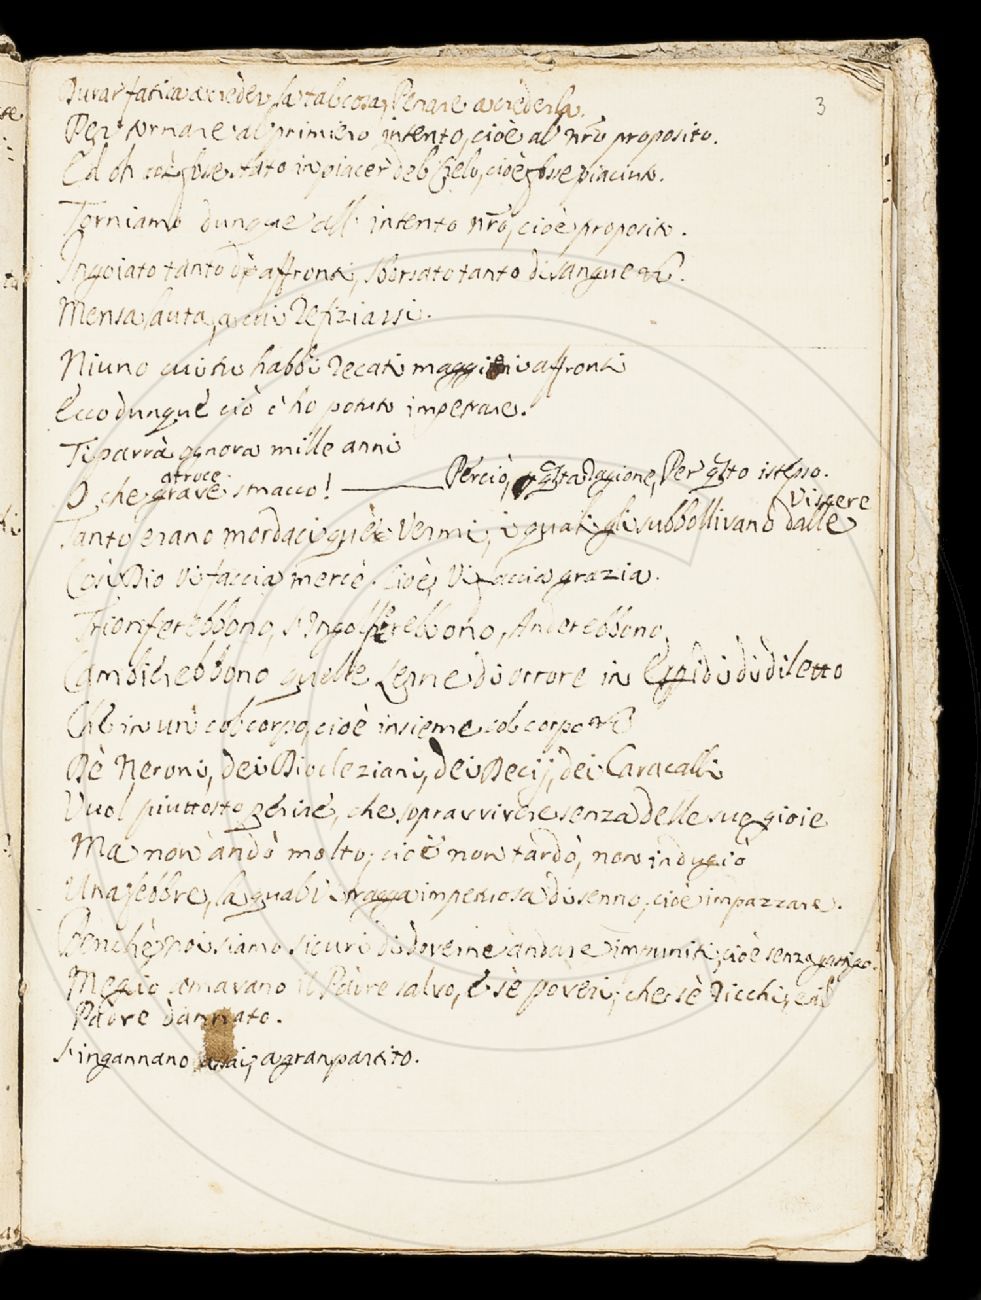 3
Durar fatica à creder la tal cosa, Penare a crederla.
Per tornare al primiero intento, cioè al nrõ proposito.
Ed oh così fosse stato in piacer del Cielo, cioè fosse piaciuto.
Torniamo dunque all' intento nrõ, cioè proposito.
Ingoiato tanto di affronti, sborsato tanto di sangue
Mensa lauta, a cui Refiziarsi.
Niuno cui tu habbi recati maggiori affronti
Ecco dunque ciò c' ho potuto impetrare.
Ti parrà ognora mille anni
atroce
O, che grave smacco! ——— Perciò, qsta Ragione, Per qsto istesso.
Viscere
Tanto erano mordaci que' Vermi, i quali gli subbollivano dalle
Così Dio Vi faccia mercè. Cioè, Vi faccia grazia.
Trionferebbono, s' Ingolferebbono, Anderebbono
Cambierebbono quelle Scene di orrore in di diletto
Che in un col corpo, cioè insieme col corpo
Dè Neroni, dei Diocleziani, dei Decij, dei Caracalli
Vuol piuttosto perire, che sopravvivere senza delle sue gioie
Ma non andò molto, cioè non tardò, non indugiò
Una febbre, la qual Vi tragga imperiosa di senno, cioè impazzare.
Benchè noi siamo sicuri di doverne andare impuniti, cioè senza gastigo.
Meglio amavano il Padre salvo, e sè poveri, che sè Ricchi, e il
Padre dannato.
S' ingannano assai, a gran partito.